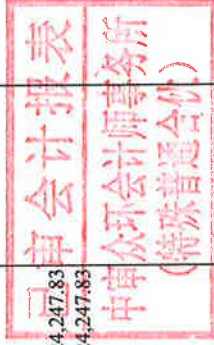 已审会计报表
中审众环会计师事务所
(特殊普通合伙)
4,247.83
4,247.83